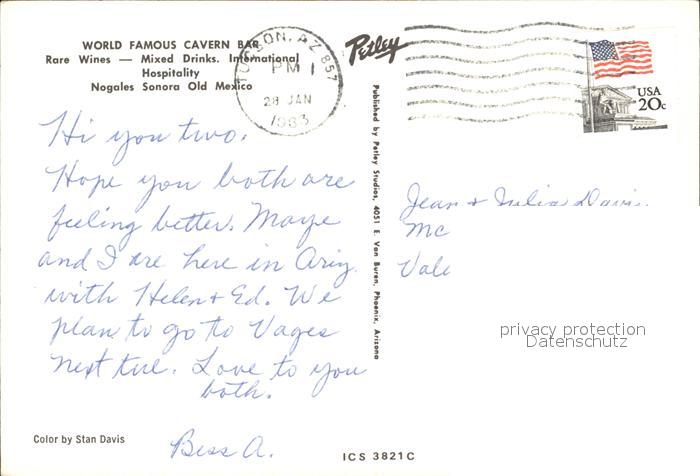 WORLD FAMOUS CAVERN BAR
Rare Wines — Mixed Drinks. International
Hospitality
Nogales Sonora Old Mexico
TUCSON, AZ 857
PM
28 JAN
1983
Petley
USA
20c
Hi you two.
Hope you both are
feeling better. Marge
and I are here in Ariz.
with Helen + Ed. We
plan to go to Vages
next tue. Love to you
both.
Bess A.
Jean + Julia Davis
Mc
Vale
Published by Petley Studios, 4051 E. Van Buren, Phoenix, Arizona
privacy protection
Datenschutz
Color by Stan Davis
ICS 3821C